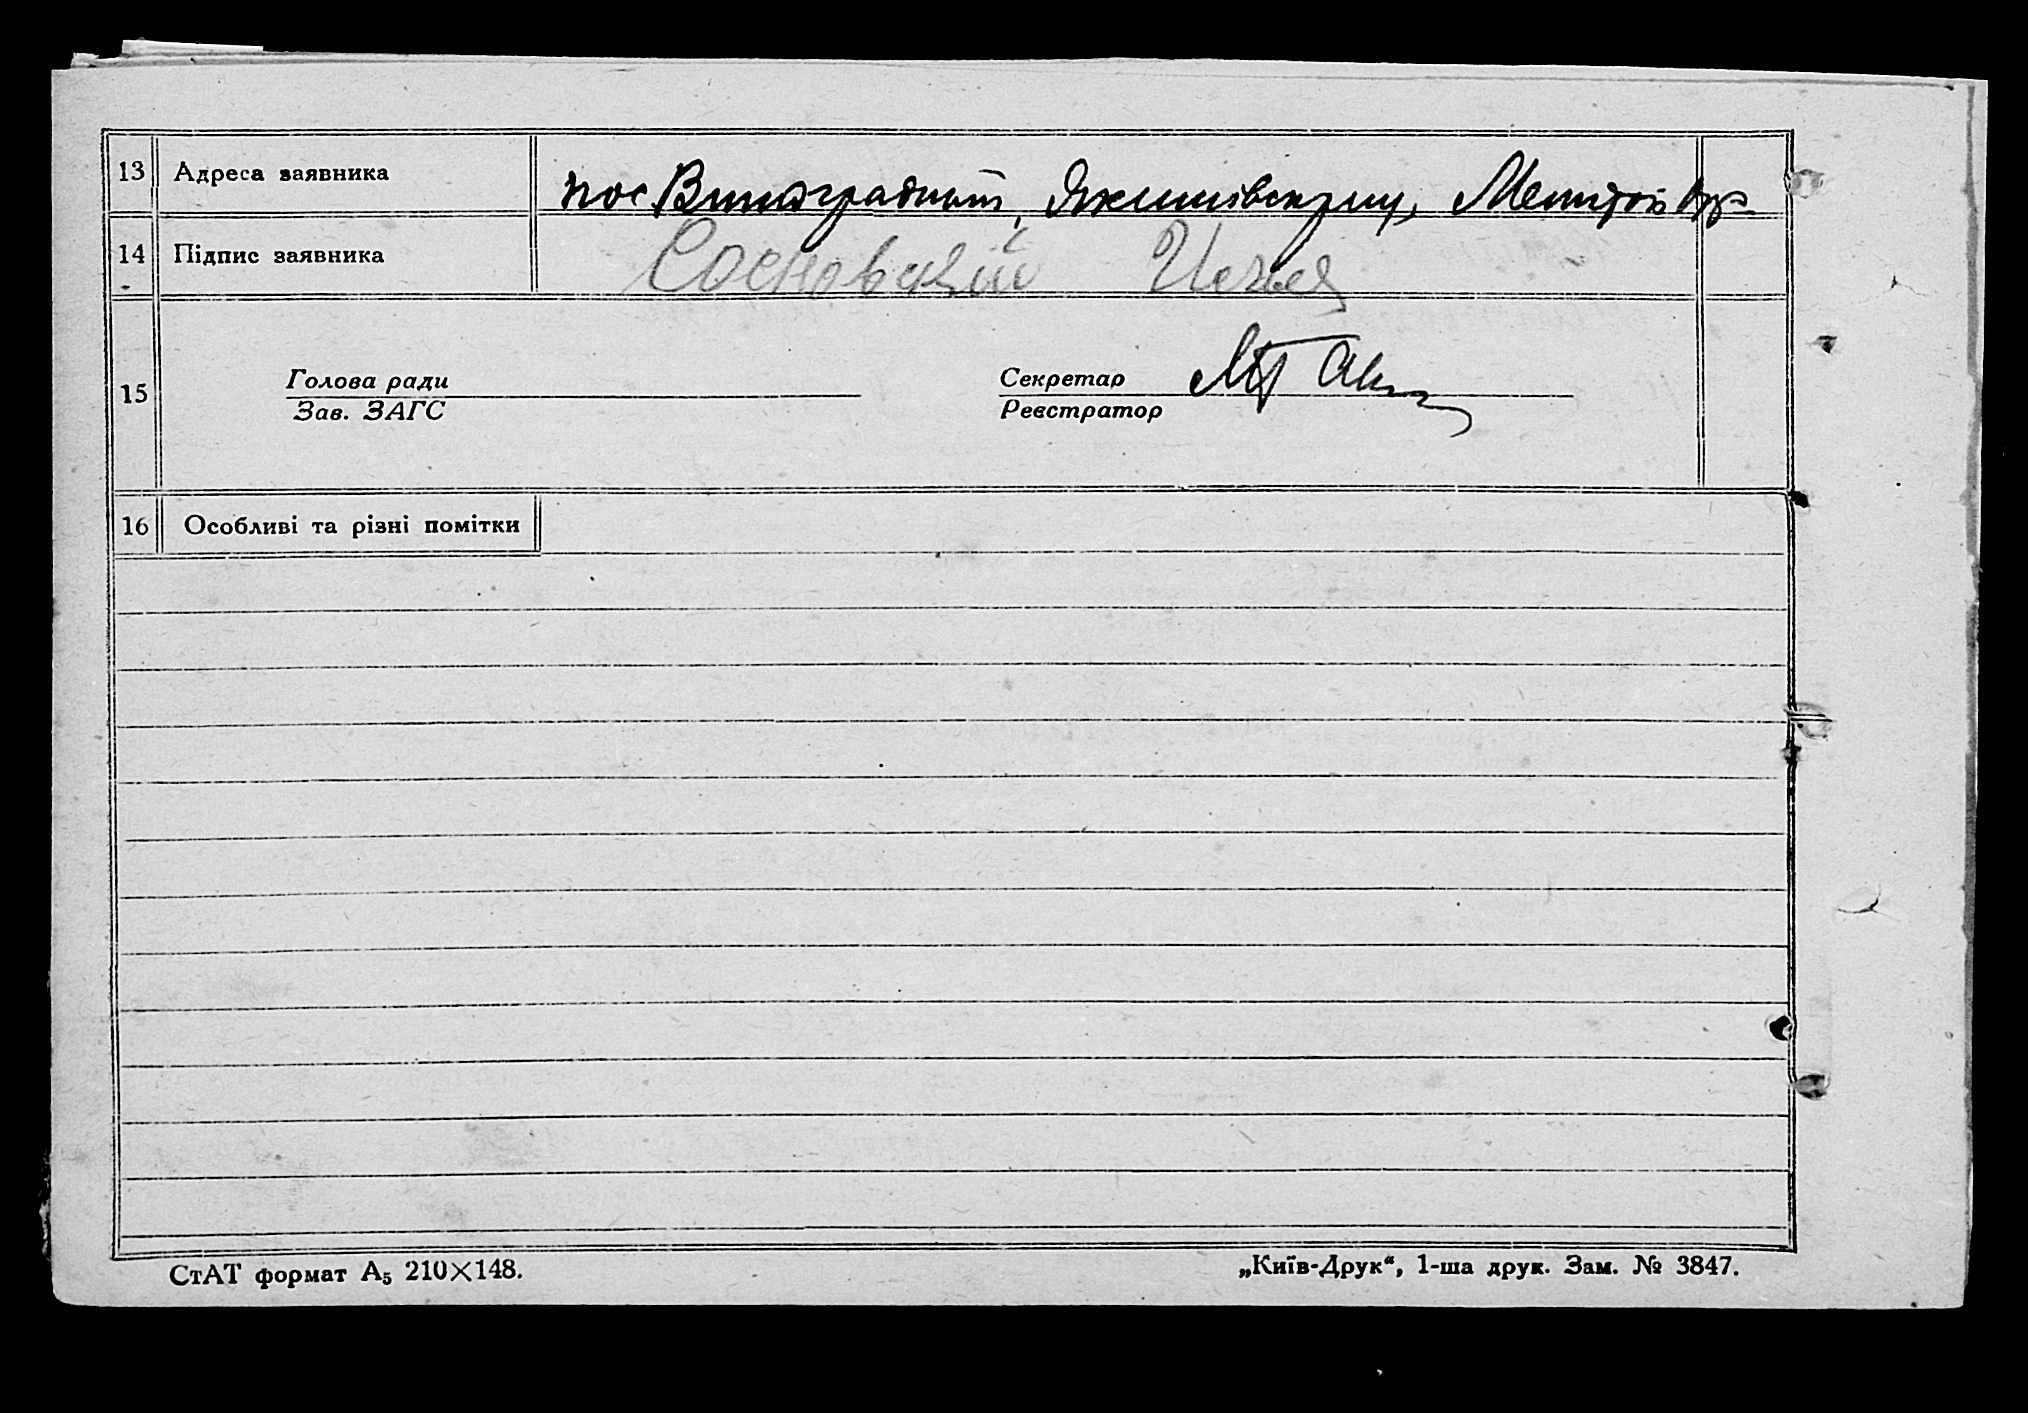 13 Адреса заявника пос Виноградний,
14 Підпис заявника Сосновский
15
Голова ради Секретар
Зав. ЗАГС Реєстратор
16 Особливі та різні помітки
СтАТ формат А₅ 210×148. „Київ-Друк“, 1-ша друк. Зам. № 3847.